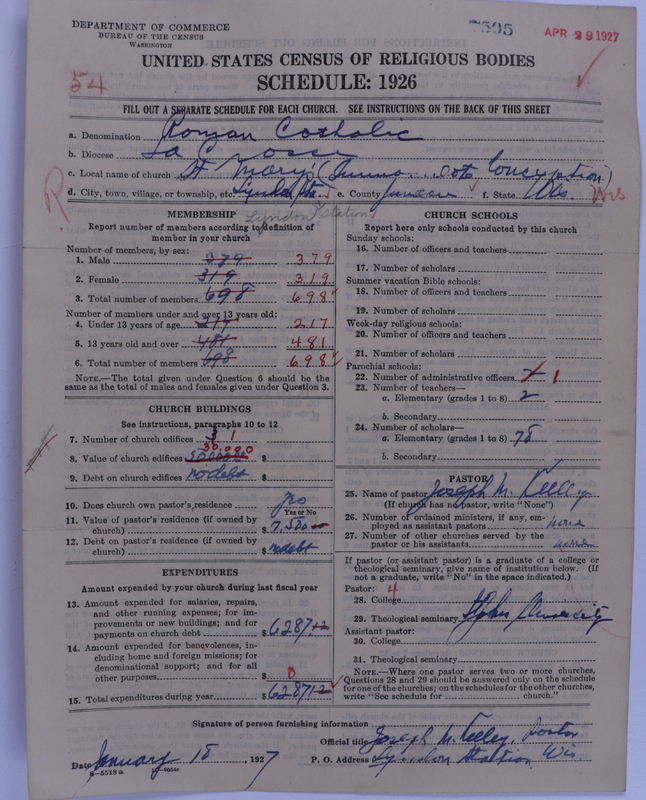 DEPARTMENT OF COMMERCE
BUREAU OF THE CENSUS
WASHINGTON
7595
APR 29 1927
UNITED STATES CENSUS OF RELIGIOUS BODIES
SCHEDULE: 1926
54
FILL OUT A SEPARATE SCHEDULE FOR EACH CHURCH. SEE INSTRUCTIONS ON THE BACK OF THIS SHEET
a. Denomination Roman Catholic
b. Diocese La Crosse
c. Local name of church St Mary's Conception)
d. City, town, village, or township, etc. Lyndon Sta. e. County Juneau f. State Wis. Wis
Lyndon Station
MEMBERSHIP
Report number of members according to definition of member in your church
Number of members, by sex:
1. Male 379 379
2. Female 319 319
3. Total number of members 698 698
Number of members under and over 13 years old:
4. Under 13 years of age 217 217
5. 13 years old and over 481 481
6. Total number of members 698 698
NOTE.—The total given under Question 6 should be the same as the total of males and females given under Question 3.
CHURCH BUILDINGS
See instructions, paragraphs 10 to 12
7. Number of church edifices 3 1
30,000
8. Value of church edifices $
9. Debt on church edifices no debt $
10. Does church own pastor's residence yes
Yes or No
11. Value of pastor's residence (if owned by church) $7,500
12. Debt on pastor's residence (if owned by church) $ no debt
EXPENDITURES
Amount expended by your church during last fiscal year
13. Amount expended for salaries, repairs, and other running expenses; for improvements or new buildings; and for payments on church debt $6287.12
14. Amount expended for benevolences, including home and foreign missions; for denominational support; and for all other purposes $ 0
15. Total expenditures during year $6287.12
CHURCH SCHOOLS
Report here only schools conducted by this church
Sunday schools:
16. Number of officers and teachers
17. Number of scholars
Summer vacation Bible schools:
18. Number of officers and teachers
19. Number of scholars
Week-day religious schools:
20. Number of officers and teachers
21. Number of scholars
Parochial schools:
22. Number of administrative officers 1
23. Number of teachers—
a. Elementary (grades 1 to 8) 2
b. Secondary
24. Number of scholars—
a. Elementary (grades 1 to 8) 78
b. Secondary
PASTOR
25. Name of pastor Joseph M. Kelley
(If church has no pastor, write "None")
26. Number of ordained ministers, if any, employed as assistant pastors none
27. Number of other churches served by the pastor or his assistants
If pastor (or assistant pastor) is a graduate of a college or theological seminary, give name of institution below. (If not a graduate, write "No" in the space indicated.)
Pastor: 4
28. College
29. Theological seminary St John University
Assistant pastor:
30. College
31. Theological seminary
NOTE.—Where one pastor serves two or more churches, Questions 28 and 29 should be answered only on the schedule for one of the churches; on the schedules for the other churches, write "See schedule for church."
Signature of person furnishing information
Official title Joseph M. Kelley, Pastor
Date January 18, 1927 P. O. Address Lyndon Station Wis.
8—5518 a